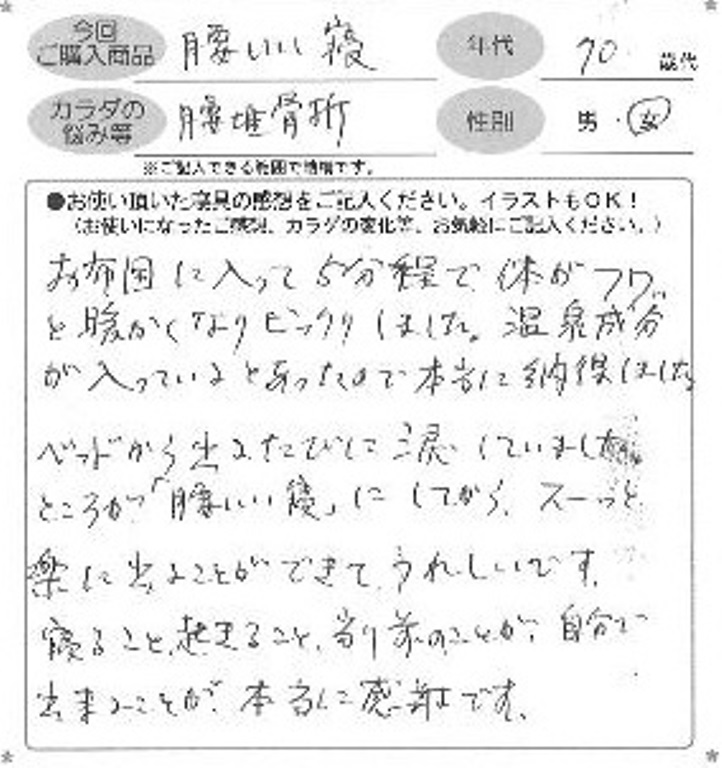 今回
ご購入商品
腰いい寝
年代
70
歳代
カラダの
悩み等
腰堆骨折
性別
男・女
※ご記入できる範囲で結構です。
●お使い頂いた寝具の感想をご記入ください。イラストもOK!
(お使いになったご感想、カラダの変化等、お気軽にご記入ください。)
お布団に入って5分程で体がフワッ
と暖かくなりビックリしました。温泉成分
が入っているとあったので本当に納得しました
ベッドから出るたびに涙していました
ところが「腰いい寝」にしてから、スーっと
楽に出ることができて、うれしいです。
寝ること、起きること、当り前のことが、自分で
出来ることが、本当に感謝です。